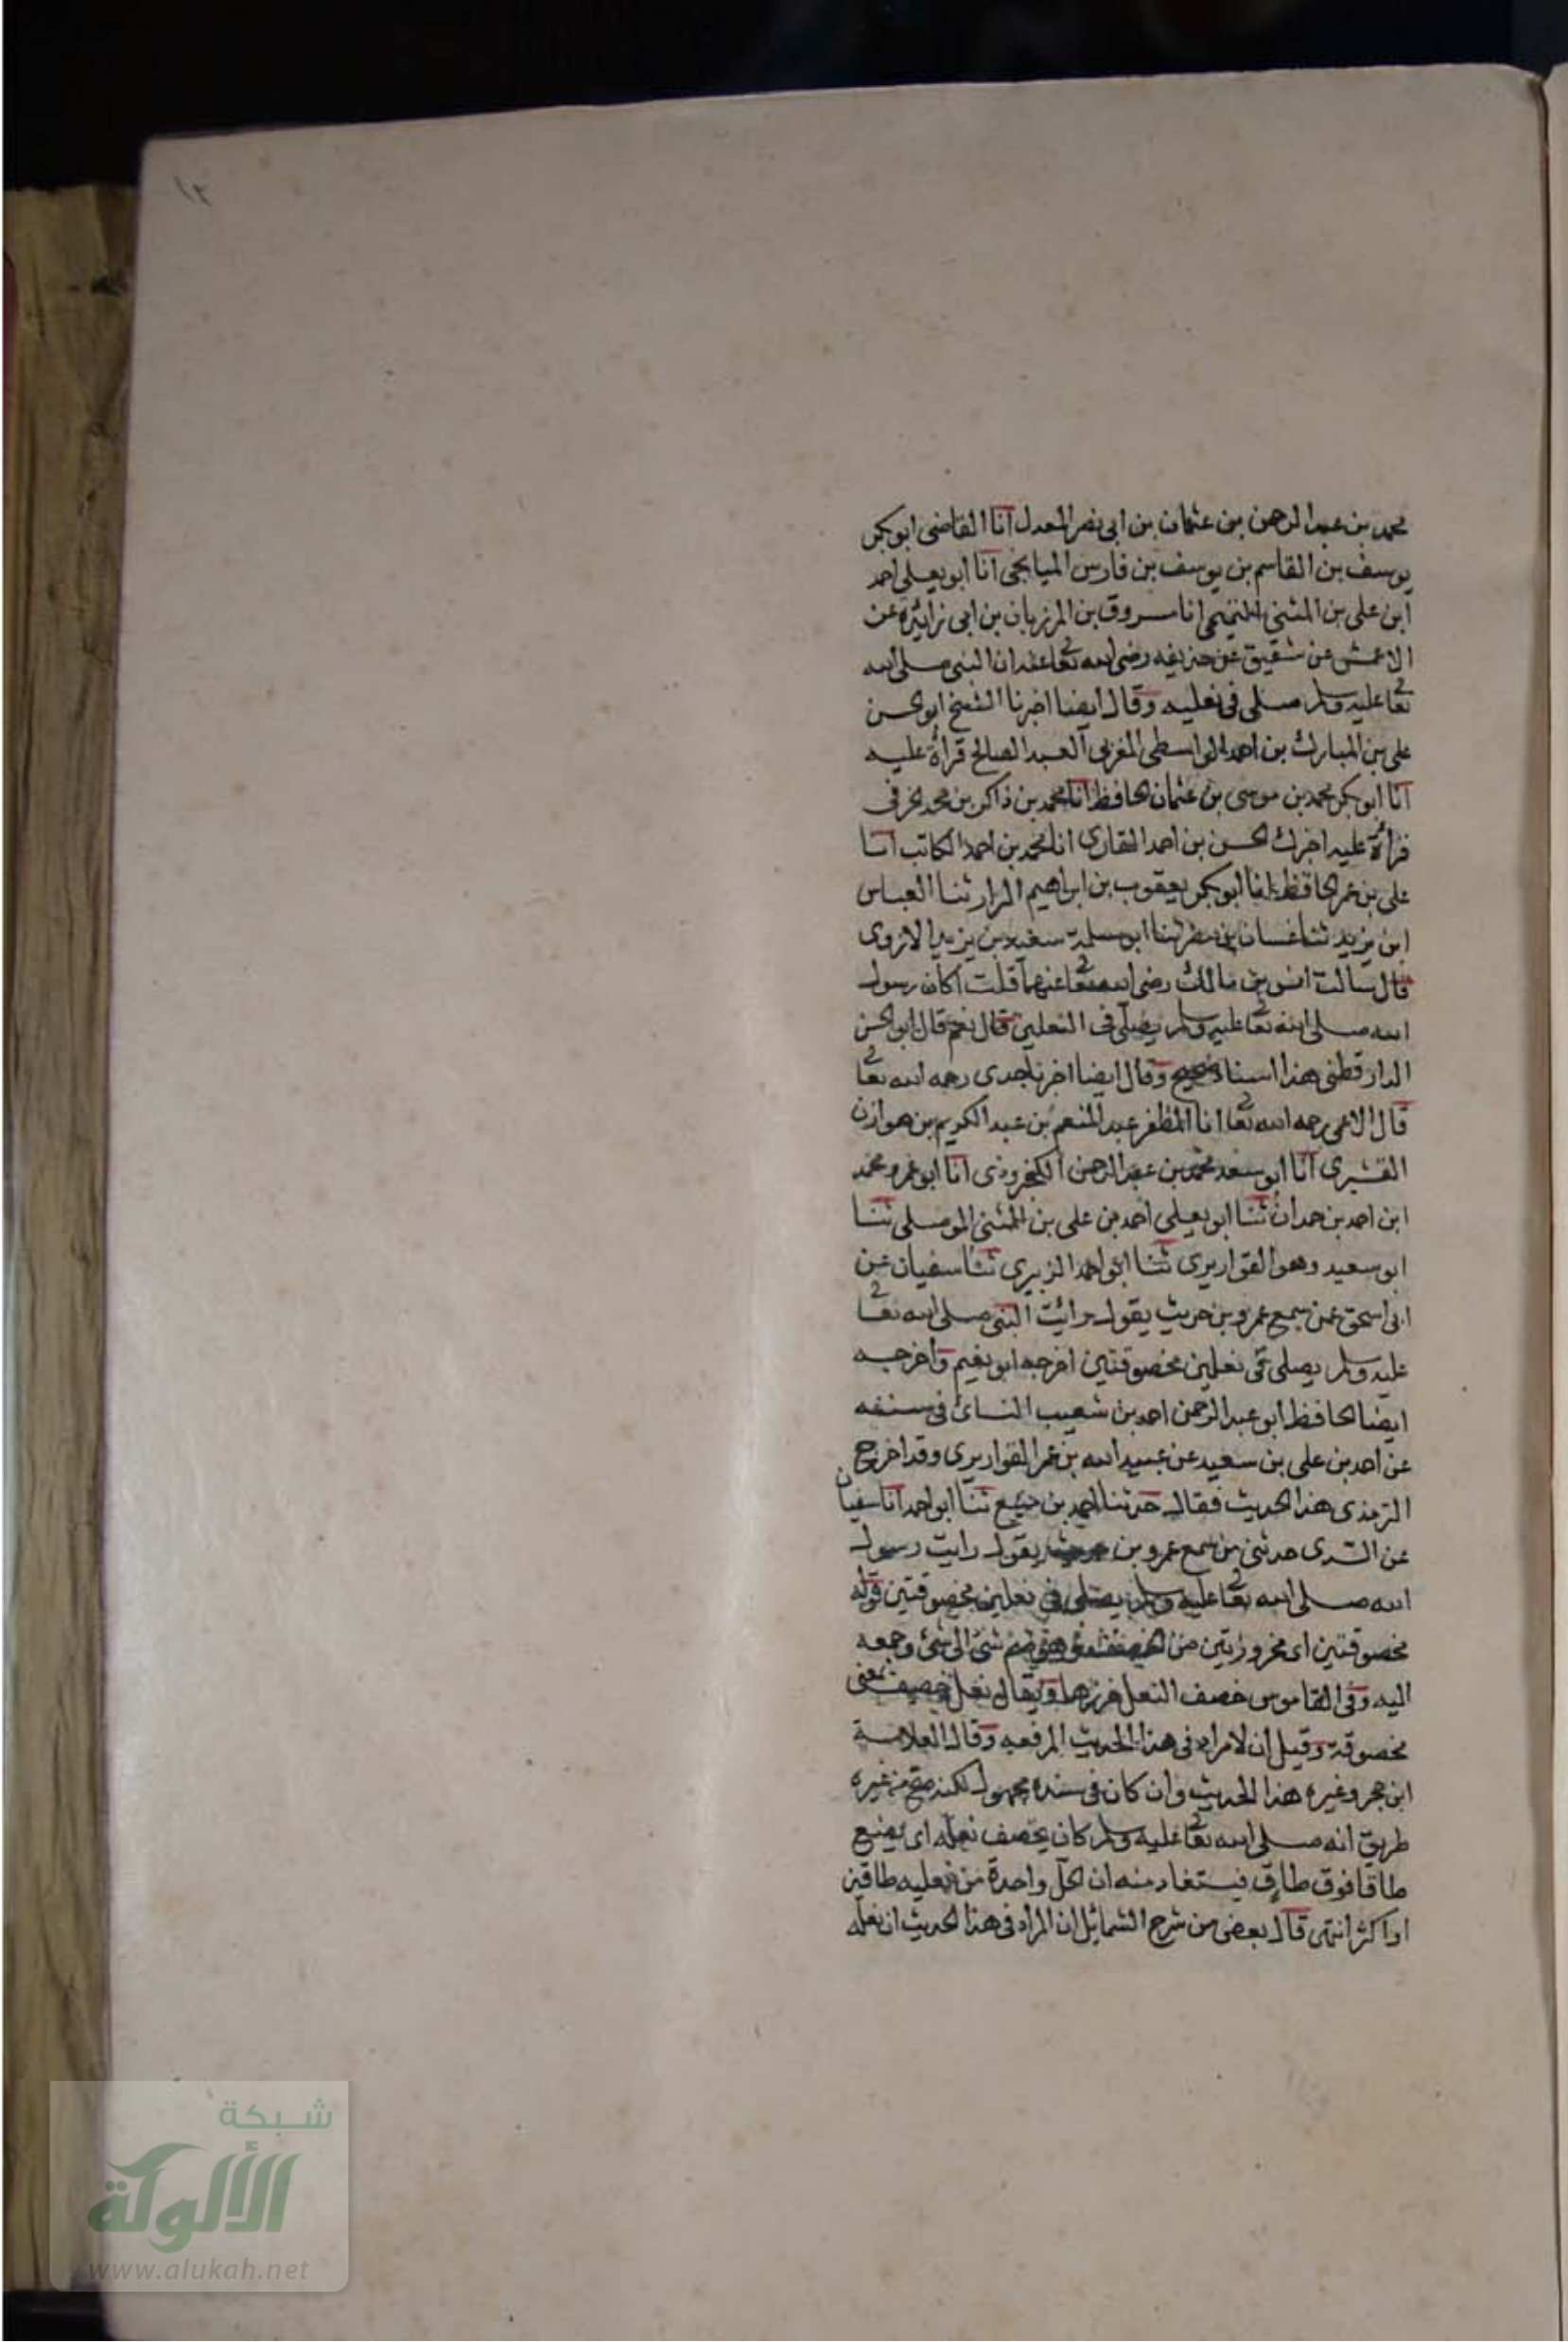 ١٢
محمد بن عبد الرحمن بن عثمان بن ابى نصر المعدل انا القاضى ابو بكر
يوسف بن القاسم بن يوسف بن فارس الميانجى انا ابو يعلى احمد
ابن على بن المثنى التميمى انا مسروق بن المرزبان بن ابى زائدة عن
الاعمش عن شقيق عن حذيفه رضى الله تعا عنه ان النبى صلى الله
تعا عليه وسلم صلى فى نعليه وقال ايضا اخبرنا الشيخ ابو الحسن
على بن المبارك بن احمد الواسطى المغربى العبد الصالح قراءة عليه
انا ابو بكر محمد بن موسى بن عثمان الحافظ انا محمد بن ذاكر بن محمد الخرقى
قراءة عليه اخبرك الحسن بن احمد القارى انا محمد بن احمد الكاتب انا
على بن عمر الحافظ ابو بكر يعقوب بن ابراهيم البزار ثنا العباس
ابن يزيد ثنا غسان بن مضر ثنا ابو سلمة سعيد بن يزيد الازدى
قال سالت انس بن مالك رضى الله تعا عنهما قلت اكان رسول
الله صلى الله تعا عليه وسلم يصلى فى النعلين قال نعم قال ابو الحسن
الدارقطنى هذا اسناد صحيح وقال ايضا اخبرنا جدى رحمه الله تعا
قال الاعمى رحمه الله تعا انا المظفر عبد المنعم بن عبد الكريم بن هوازن
القشيرى انا ابو سعد محمد بن عبد الرحمن الكنجرودى انا ابو عمرو محمد
ابن احمد بن حمدان ثنا ابو يعلى احمد بن على بن المثنى الموصلى ثنا
ابو سعيد وهو القواريرى ثنا ابو احمد الزبيرى ثنا سفيان عن
ابى اسحق عمن سمع عمرو بن حريث يقول رائت النبى صلى الله تعا
عليه وسلم يصلى فى نعلين مخصوفتين اخرجه ابو نعيم واخرجه
ايضا الحافظ ابو عبد الرحمن احمد بن شعيب النسائ فى سننه
عن احمد بن على بن سعيد عن عبيد الله بن عمر القواريرى وقد اخرج
الترمذى هذا الحديث فقال حدثنا احمد بن منيع ثنا ابو احمد انا سفيان
عن السدى حدثنى من سمع عمرو بن حريث يقول رايت رسول
الله صلى الله تعا عليه وسلم يصلى فى نعلين مخصوفتين قوله
مخصوفتين اى مخروزتين من الخصف وهو ضم شئ الى شئ وجمعه
اليه وفى القاموس خصف النعل خرزها ويقال نعل خصيف بمعنى
مخصوفة وقيل ان المراد فى هذا الحديث المرقعه وقال العلامة
ابن حجر وغيره هذا الحديث وان كان فى سنده مجهول لكنه صح من غيره
طريق انه صلى الله تعا عليه وسلم كان يخصف نعله اى يضع
طاقا فوق طاق فيستفاد منه ان لكل واحدة من نعليه طاقين
او اكثر انتهى قال بعض من شرح الشمائل ان المراد فى هذا الحديث ان نعله
شبكة
الألوكة
www.alukah.net